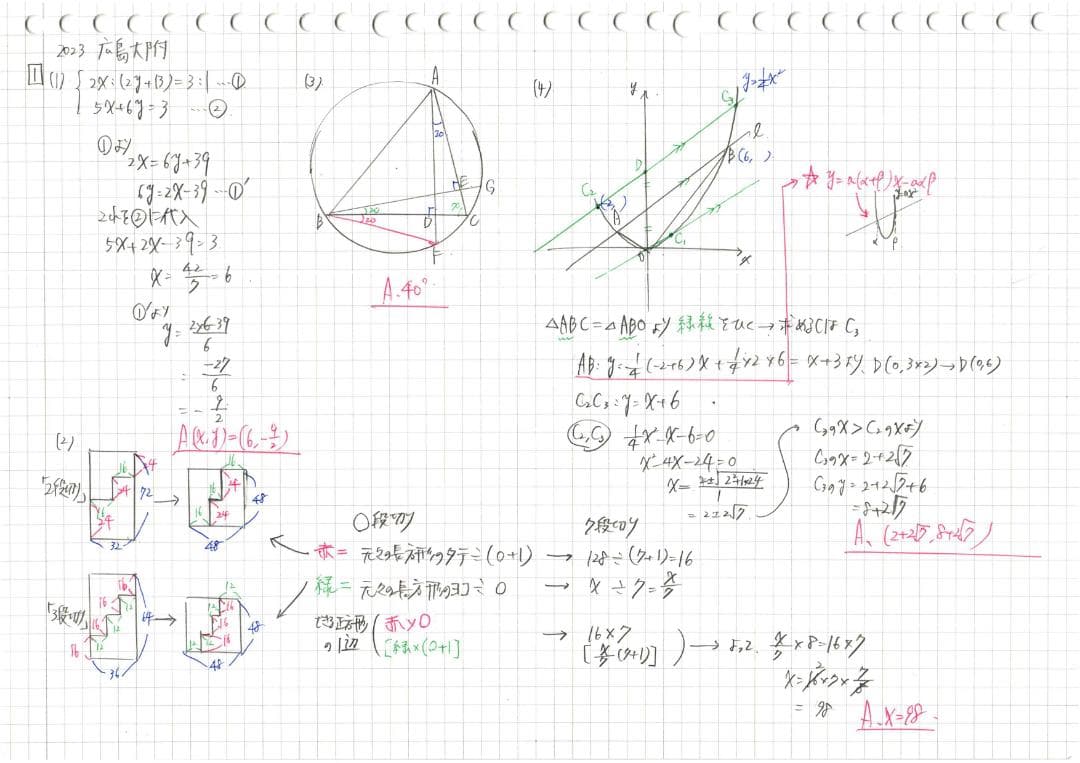 2023 広島大附
1 (1) { 2x:(2y+13)=3:1 …①
5x+6y=3 …②
①より
2x=6y+39
6y=2x-39 …①'
これを②に代入
5x+2x-39=3
x=42/7=6
①'より
y=2×6-39/6
=-27/6
=-9/2
A(x,y)=(6,-9/2)
(2)
「2段切り」
16
24
24
16
24
72
32
16
24
16
24
48
48
「3段切り」
16
12
16
12
16
12
16
64
36
12
16
12
16
12
16
48
48
○段切り
7段切り
赤= 元々の長方形のタテ÷(○+1) → 128÷(7+1)=16
緑= 元々の長方形のヨコ÷○ → x÷7=x/7
できる正方形の1辺 ( 赤×○ → 16×7
[緑×(○+1)] [x/7(7+1)] ) → よって、x/7×8=16×7
x=16×7×7/8
2
=98
A、x=98
(3)
A
20
E
G
B
20
20
D
70
C
F
A、40°
(4)
y
y=1/4x²
C3
l
B(6, )
D
C2
(-2, )
A
C1
O
x
☆ y=a(α+β)x-aαβ
y=ax²
α
β
△ABC=△ABOより 緑線をひく→求めるCはC3
AB:y=1/4(-2+6)x+1/4×2×6=x+3より、D(0,3×2)→D(0,6)
C2C3:y=x+6
C2,C3 1/4x²-x-6=0
x²-4x-24=0
x=2±√2²+1×24/1
=2±2√7
C3のx>C2のxより
C3のx=2+2√7
C3のy=2+2√7+6
=8+2√7
A、(2+2√7,8+2√7)